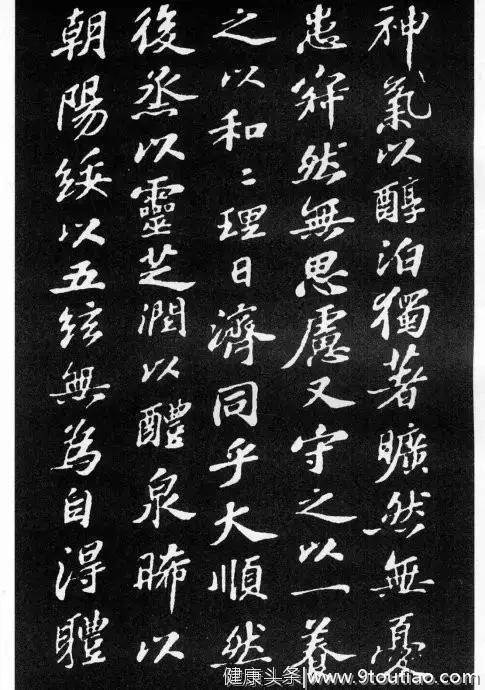 神氣以醇泊獨著曠然無憂
患寂然無思慮又守之以一養
之以和〻理日濟同乎大順然
後蒸以靈芝潤以醴泉晞以
朝陽綏以五絃無為自得體
健康头条 www.9toutiao.com